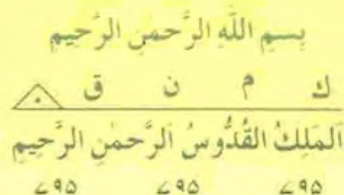 بِسمِ اللّٰهِ الرَّحمٰنِ الرَّحِيمِ
ك م ن ق .
اَلمَلِكُ القُدُّوسُ اَلرَّحمٰنِ الرَّحِيمِ
٧٩٥ ٧٩٥ ٧٩٥